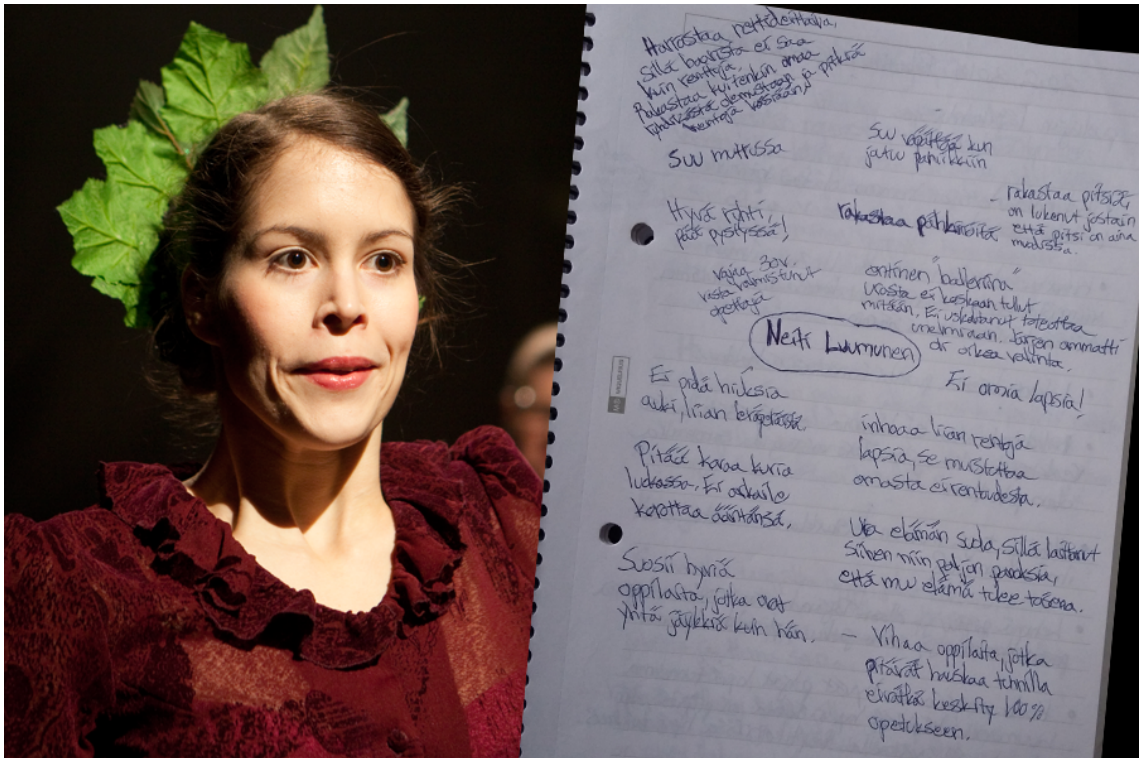 Harrastaa nettideittailua,
sillä baarista ei saa
kuin renttuja.
Rakastaa kuitenkin omaa
olemustaan ja pitkiä
hentoja käsiään,
Suu mutrussa
Suu väpättää kun
jatuu paniikkiin
Hyvä ryhti,
pää pystyssä!
rakastaa pähkinöitä
- rakastaa pitsiä,
on lukenut jostain
että pitsi on aina
muodissa.
vajaa 30v.
vasta valmistunut
opettaja
entinen "balleriina"
Urasta ei koskaan tullut
mitään. Ei uskaltanut toteuttaa
unelmiaan. Järjen ammatti
oli oikea valinta.
Neiti Luumunen
Ei omia lapsia!
Ei pidä hiuksia
auki, liian
inhoaa liian rentoja
lapsia, se muistuttaa
omasta ei rentoudesta.
Pitää kovaa kuria
luokassa. Ei arkaile
korottaa ääntänsä.
Ura elämän suola, sillä laittanut
siihen niin paljon panoksia,
että muu elämä tulee toisena.
Suosii hyviä
oppilaita, jotka ovat
yhtä jäykkiä kuin hän.
- Vihaa oppilaita, jotka
pitävät hauskaa tunnilla
eivätkä keskity 100%
opetukseen.